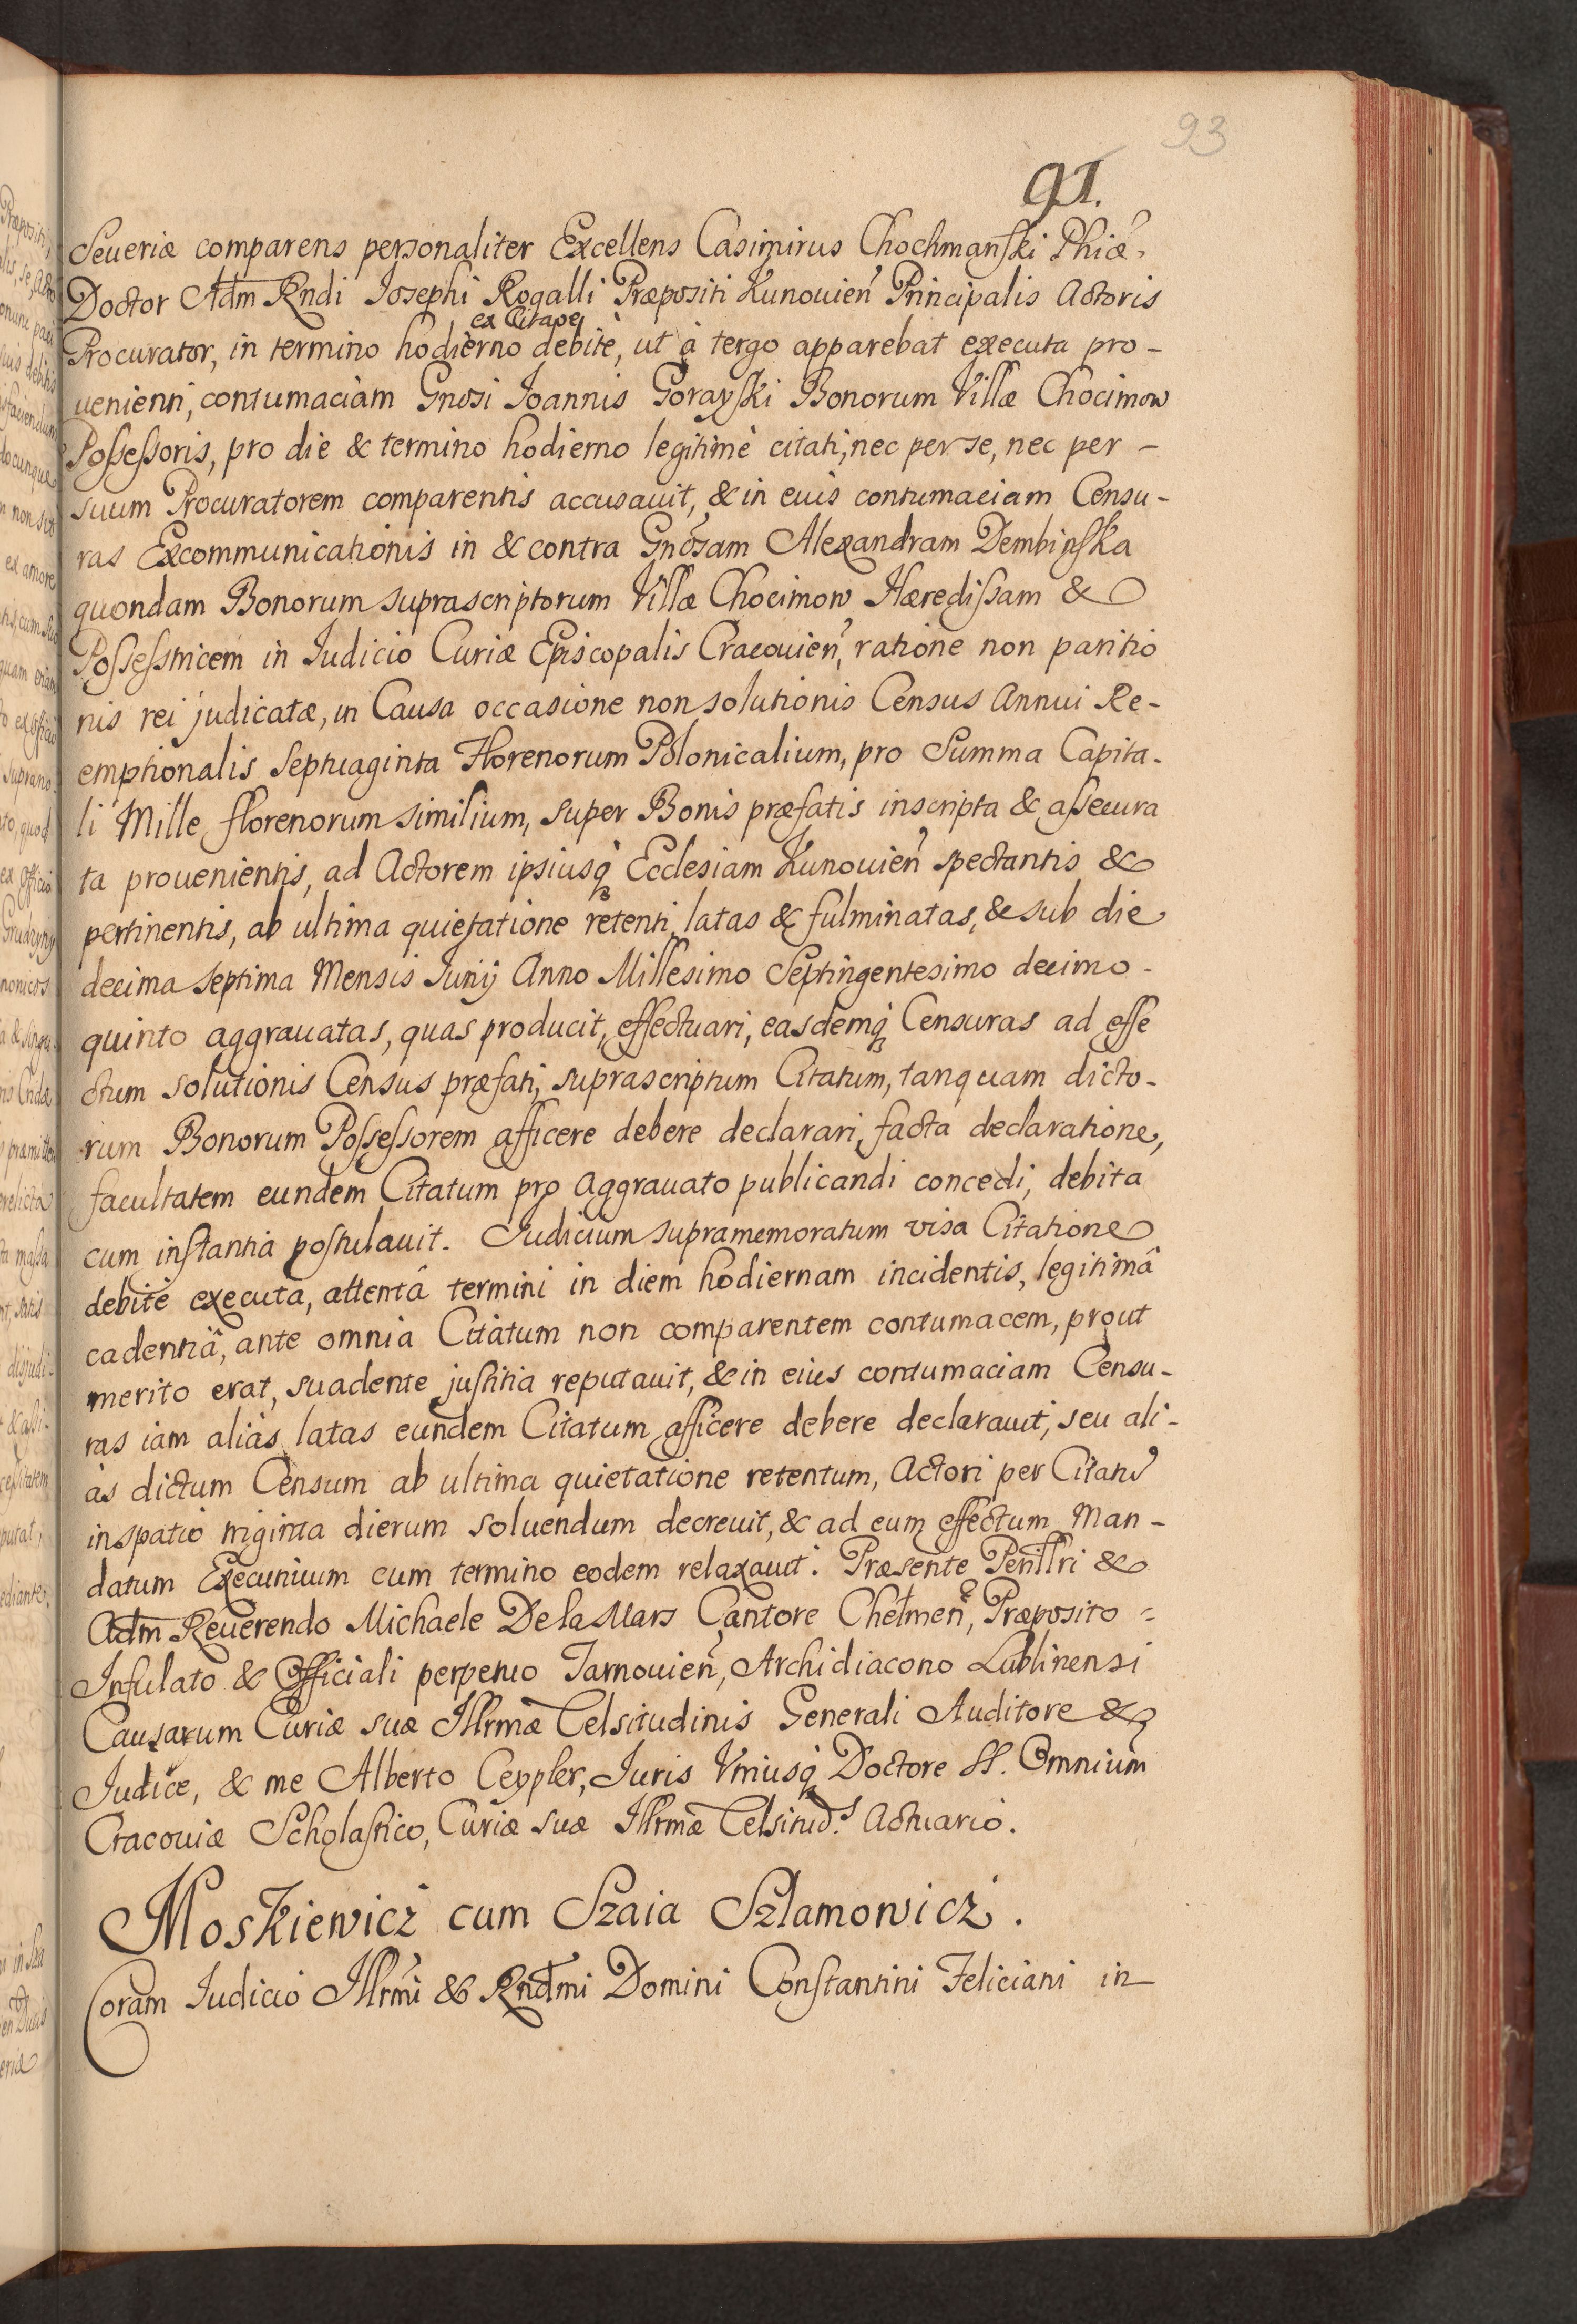 93
91.
Seueriæ comparens personaliter Excellens Casimirus Chochmanski Phiæ
Doctor Adm Rndi Josephi Rogalli Præpositi Kunouien Principalis Actoris
ex Citaõe
Procurator, in termino hodierno debitè, ut à tergo apparebat executa pro-
uenienti, contumaciam Gnosi Joannis Gorayski Bonorum Villæ Chocimow
Possessoris, pro die & termino hodierno legitimè citati, nec per se, nec per -
suum Procuratorem comparentis accusauit, & in euis contumaciam Censu-
ras Excommunicationis in & contra Gnõsam Alexandram Dembinska
quondam Bonorum suprascriptorum Villæ Chocimow Hæredissam &
Possesstricem in Iudicio Curiæ Episcopalis Cracouien, ratione non paritio
nis rei judicatæ, in Causa occasione non solutionis Census Annui Re-
emptionalis Septuaginta Florenorum Polonicalium, pro Summa Capita-
li Mille florenorum similium, super Bonis præfatis inscripta & assecura
ta prouenientis, ad Actorem ipsiusq Ecclesiam Kunouien spectantis &
pertinentis, ab ultima quietatione retenti, latas & fulminatas, & sub die
decima septima Mensis Junij Anno Millesimo Septingentesimo decimo-
quinto aggrauatas, quas producit, effectuari, easdemq Censuras ad effe
ctum solutionis Census præfati, suprascriptum Citatum, tanquam dicto-
rum Bonorum Possessorem afficere debere declarari, facta declaratione,
facultatem eundem Citatum pro aggrauato publicandi concedi, debita
cum instantia postulauit. Iudicium supramemoratum visa Citatione
debitè executa, attentâ termini in diem hodiernam incidentis, legitimâ
cadentiâ, ante omnia Citatum non comparentem contumacem, prout
merito erat, suadente justitia reputauit, & in eius contumaciam Censu-
ras iam aliàs latas eundem Citatum afficere debere declarauit, seu ali-
às dictum Censum ab ultima quietatione retentum, Actori per Citatũ
in spatio triginta dierum soluendum decreuit, & ad eum effectum Man-
datum Executiuum cum termino eodem relaxauit. Præsente Perillri &
Adm Reuerendo Michaele De la Mars Cantore Chełmen, Præposito =
Infulato & Officiali perpetuo Tarnouien, Archidiacono Lublinensi
Causarum Curiæ suæ Illrmæ Celsitudinis Generali Auditore &
Judice, & me Alberto Ceypler, Juris Vtriusq Doctore SS. Omnium
Cracouiæ Scholastico, Curiæ suæ Illrmæ Celsitud.s Actuario.
Moskiewicz cum Szaia Szlamowicz.
Coram Iudicio Illrmi & Rndmi Domini Constantini Feliciani in